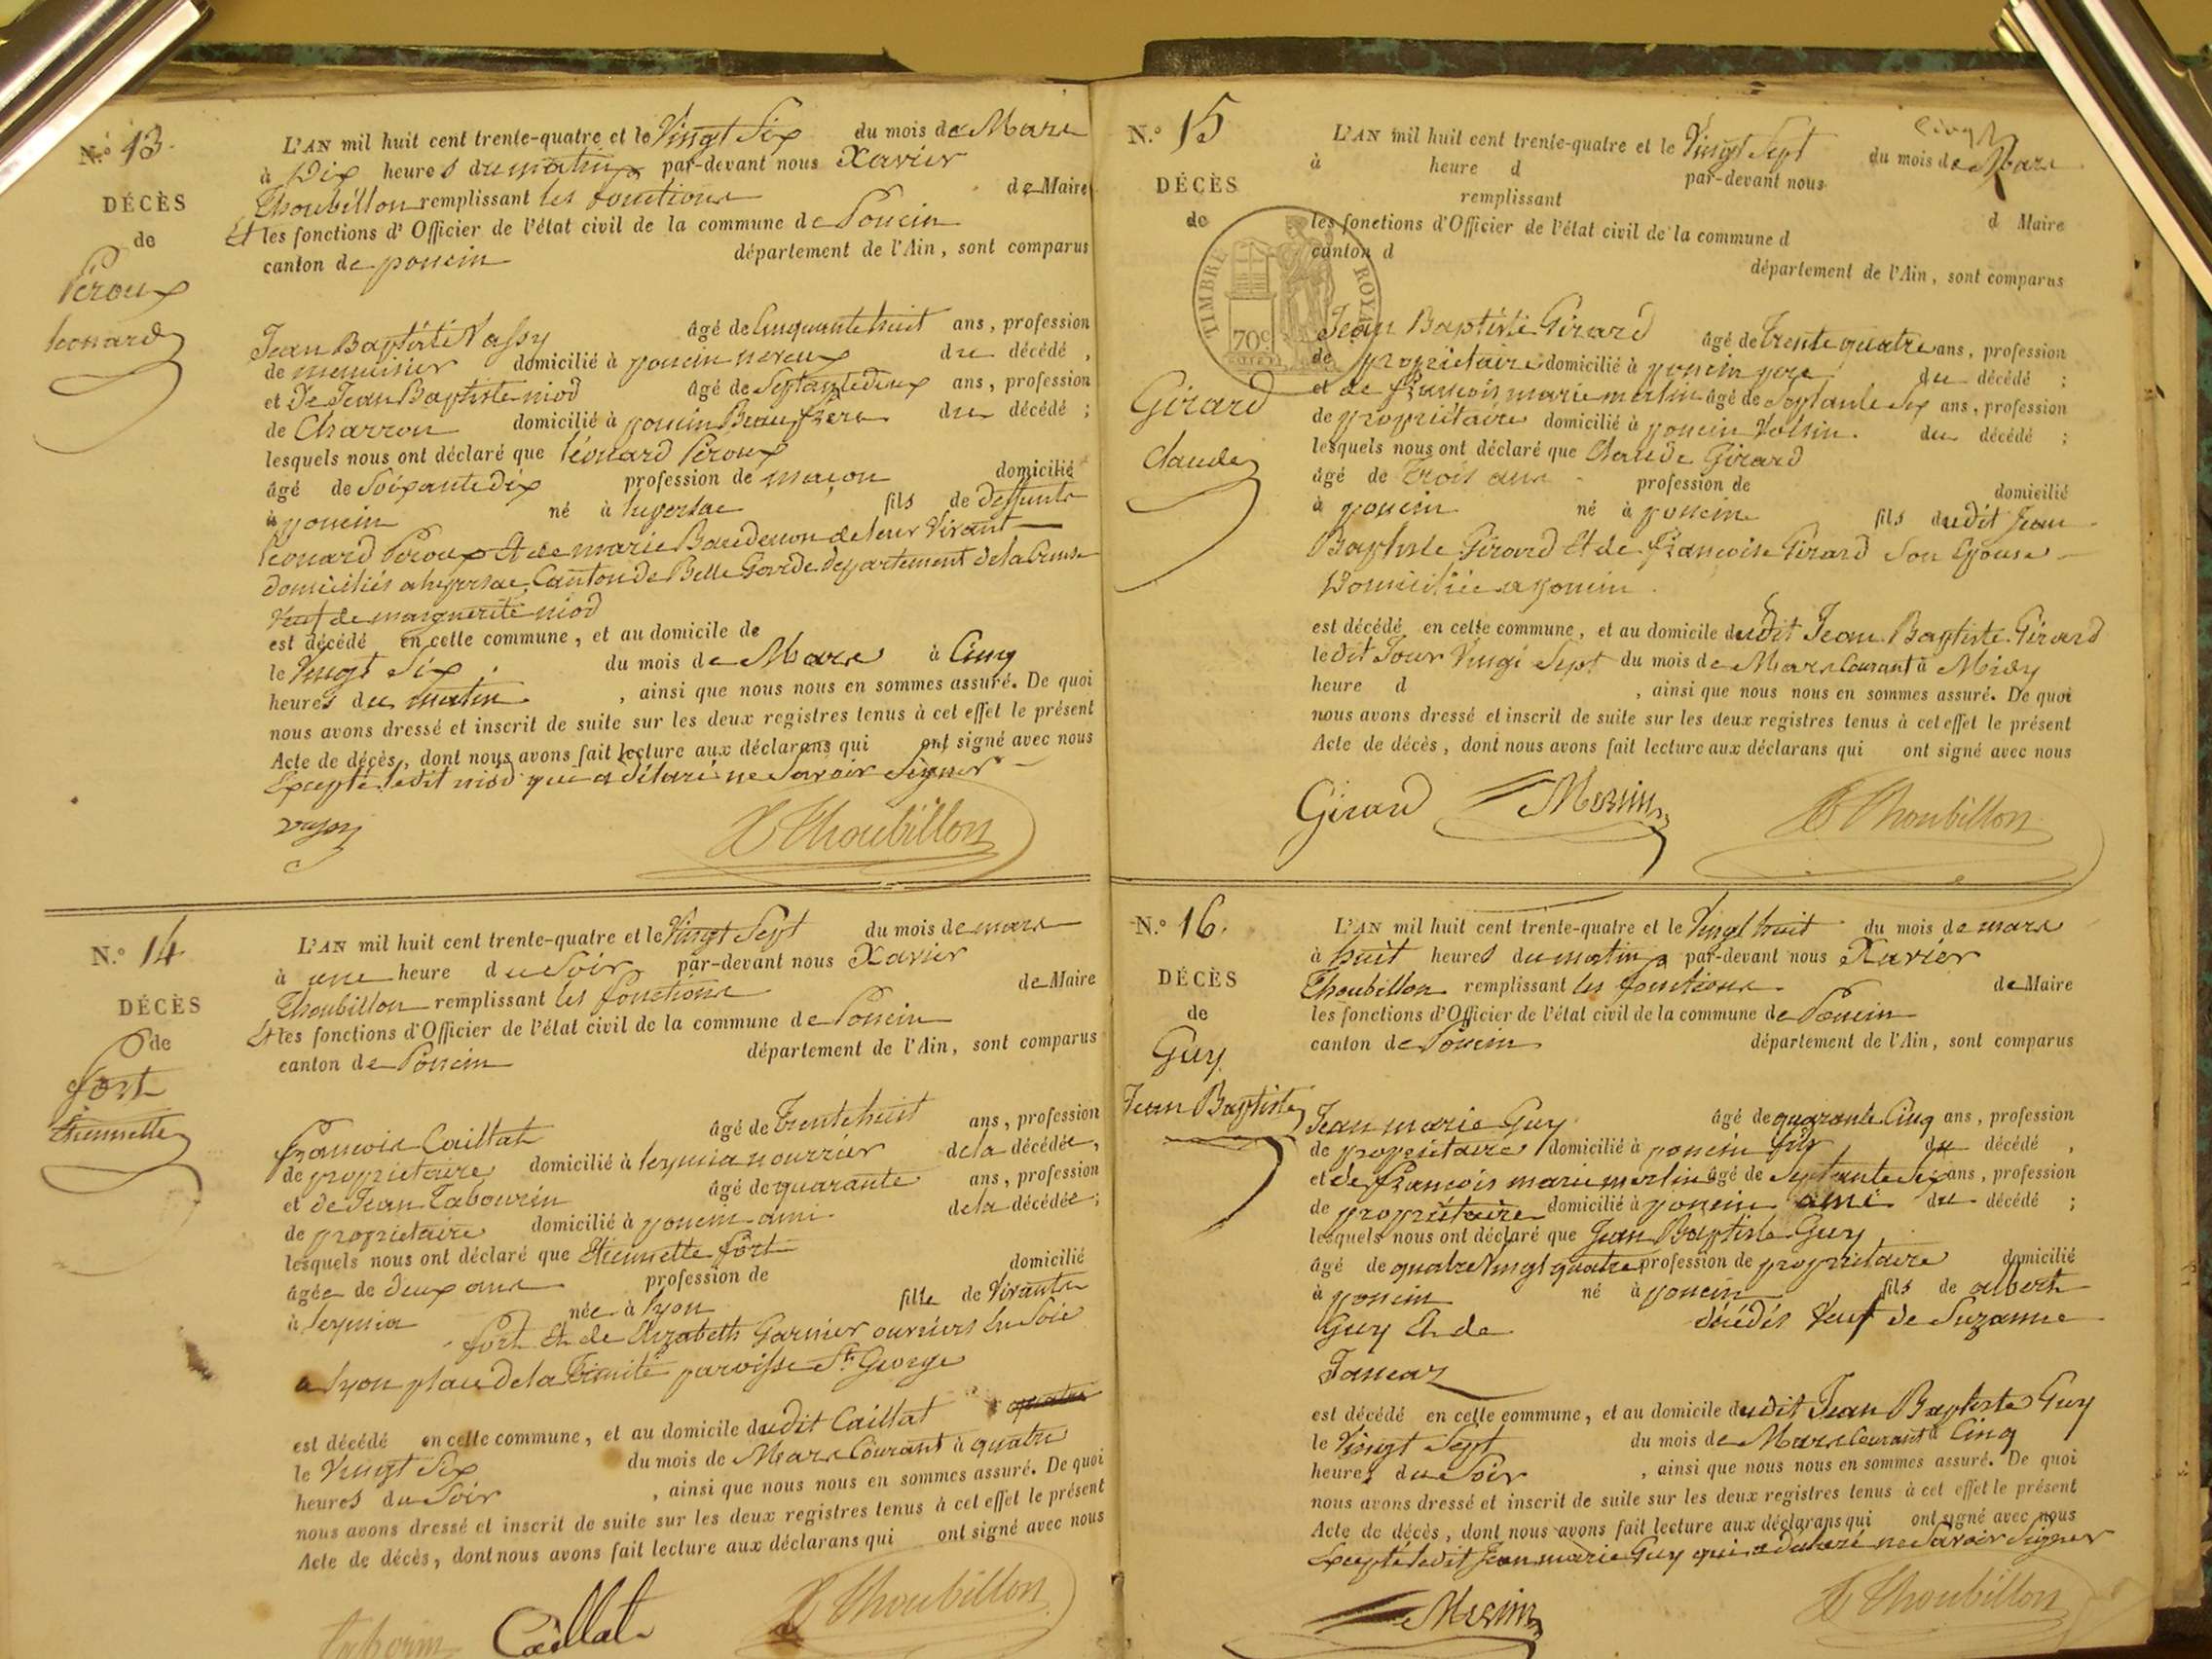 N.o 13.
DÉCÈS
de
Péroux
Léonard
L'AN mil huit cent trente-quatre et le Vingt Six du mois de Mars
à Dix heures du matin par-devant nous Xavier
Thoubillon remplissant les fonctions de Maire
Et les fonctions d'Officier de l'état civil de la commune de Poncin
canton de poncin département de l'Ain, sont comparus
Jean Baptiste Vassy âgé de Cinquante huit ans, profession
de menuisier domicilié à poncin neveux du décédé,
et De Jean Baptiste niod âgé de Septante deux ans, profession
de Charron domicilié à poncin Beau frère du décédé;
lesquels nous ont déclaré que Léonard Péroux
âgé de Soixante dix profession de maçon domicilié
à poncin né à fils de deffunts
Léonard Péroux Et de marie de leur Vivant
domiciliés a Canton de Belle Garde departement de la Creuse
Veuf de marguerite niod
est décédé en cette commune, et au domicile de
le Vingt Six du mois de Mars à Cinq
heures du matin, ainsi que nous nous en sommes assuré. De quoi
nous avons dressé et inscrit de suite sur les deux registres tenus à cet effet le présent
Acte de décès, dont nous avons fait lecture aux déclarans qui ont signé avec nous
Excepté ledit niod qui a déclaré ne Savoir Signer
X Thoubillon
N.o 14
DÉCÈS
de
fort
Etiennette
L'AN mil huit cent trente-quatre et le Vingt Sept du mois de mars
à une heure du Soir par-devant nous Xavier
Thoubillon remplissant les fonctions de Maire
Et les fonctions d'Officier de l'état civil de la commune de Poncin
canton de Poncin département de l'Ain, sont comparus
françois Caillat âgé de Trente huit ans, profession
de propriétaire domicilié à leymia nourricier de la décédée,
et de Jean Tabourin âgé de quarante ans, profession
de propriétaire domicilié à poncin ami de la décédée;
lesquels nous ont déclaré que Etiennette fort
âgée de deux ans profession de domicilié
à leymia née à lyon fille de Vivants
fort Et de Elizabeth Garnier ouvriers En Soie
a lyon place de la Trinité paroisse St George
est décédé en cette commune, et au domicile dudit Caillat
le Vingt Six du mois de Mars Courant à quatre
heures du Soir, ainsi que nous nous en sommes assuré. De quoi
nous avons dressé et inscrit de suite sur les deux registres tenus à cet effet le présent
Acte de décès, dont nous avons fait lecture aux déclarans qui ont signé avec nous
Caillat X Thoubillon
N.o 15
DÉCÈS
de
Girard
Claude
TIMBRE ROYAL
70c
L'AN mil huit cent trente-quatre et le Vingt Sept du mois de Mars
à heure d par-devant nous
remplissant d Maire
les fonctions d'Officier de l'état civil de la commune d
canton d département de l'Ain, sont comparus
Jean Baptiste Girard âgé de trente quatre ans, profession
de propriétaire domicilié à poncin pere du décédé;
et de françois marie merlin âgé de Septante Six ans, profession
de propriétaire domicilié à poncin Voisin du décédé;
lesquels nous ont déclaré que Claude Girard
âgé de Trois ans profession de domicilié
à poncin né à poncin fils dudit Jean
Baptiste Girard Et de françoise Girard Son Epouse
Domiciliée a poncin
est décédé en cette commune, et au domicile dudit Jean Baptiste Girard
le dit Jour Vingt Sept du mois de Mars Courant à Midy
heure d, ainsi que nous nous en sommes assuré. De quoi
nous avons dressé et inscrit de suite sur les deux registres tenus à cet effet le présent
Acte de décès, dont nous avons fait lecture aux déclarans qui ont signé avec nous
Girard X Thoubillon
N.o 16.
DÉCÈS
de
Guy
Jean Baptiste
L'AN mil huit cent trente-quatre et le Vingt huit du mois de mars
à huit heures du matin par-devant nous Xavier
Thoubillon remplissant les fonctions de Maire
les fonctions d'Officier de l'état civil de la commune de Poncin
canton de Poncin département de l'Ain, sont comparus
Jean marie Guy âgé de quarante Cinq ans, profession
de propriétaire domicilié à poncin fils du décédé,
et de françois marie merlin âgé de Septante Six ans, profession
de propriétaire domicilié à poncin ami du décédé;
lesquels nous ont déclaré que Jean Baptiste Guy
âgé de quatre Vingt quatre profession de propriétaire domicilié
à poncin né à poncin fils de albert
Guy Et de décédés Veuf de Suzanne
est décédé en cette commune, et au domicile dudit Jean Baptiste Guy
le Vingt Sept du mois de Mars Courant à Cinq
heures du Soir, ainsi que nous nous en sommes assuré. De quoi
nous avons dressé et inscrit de suite sur les deux registres tenus à cet effet le présent
Acte de décès, dont nous avons fait lecture aux déclarans qui ont signé avec nous
Excepté ledit Jean marie Guy qui a déclaré ne Savoir Signer
X Thoubillon